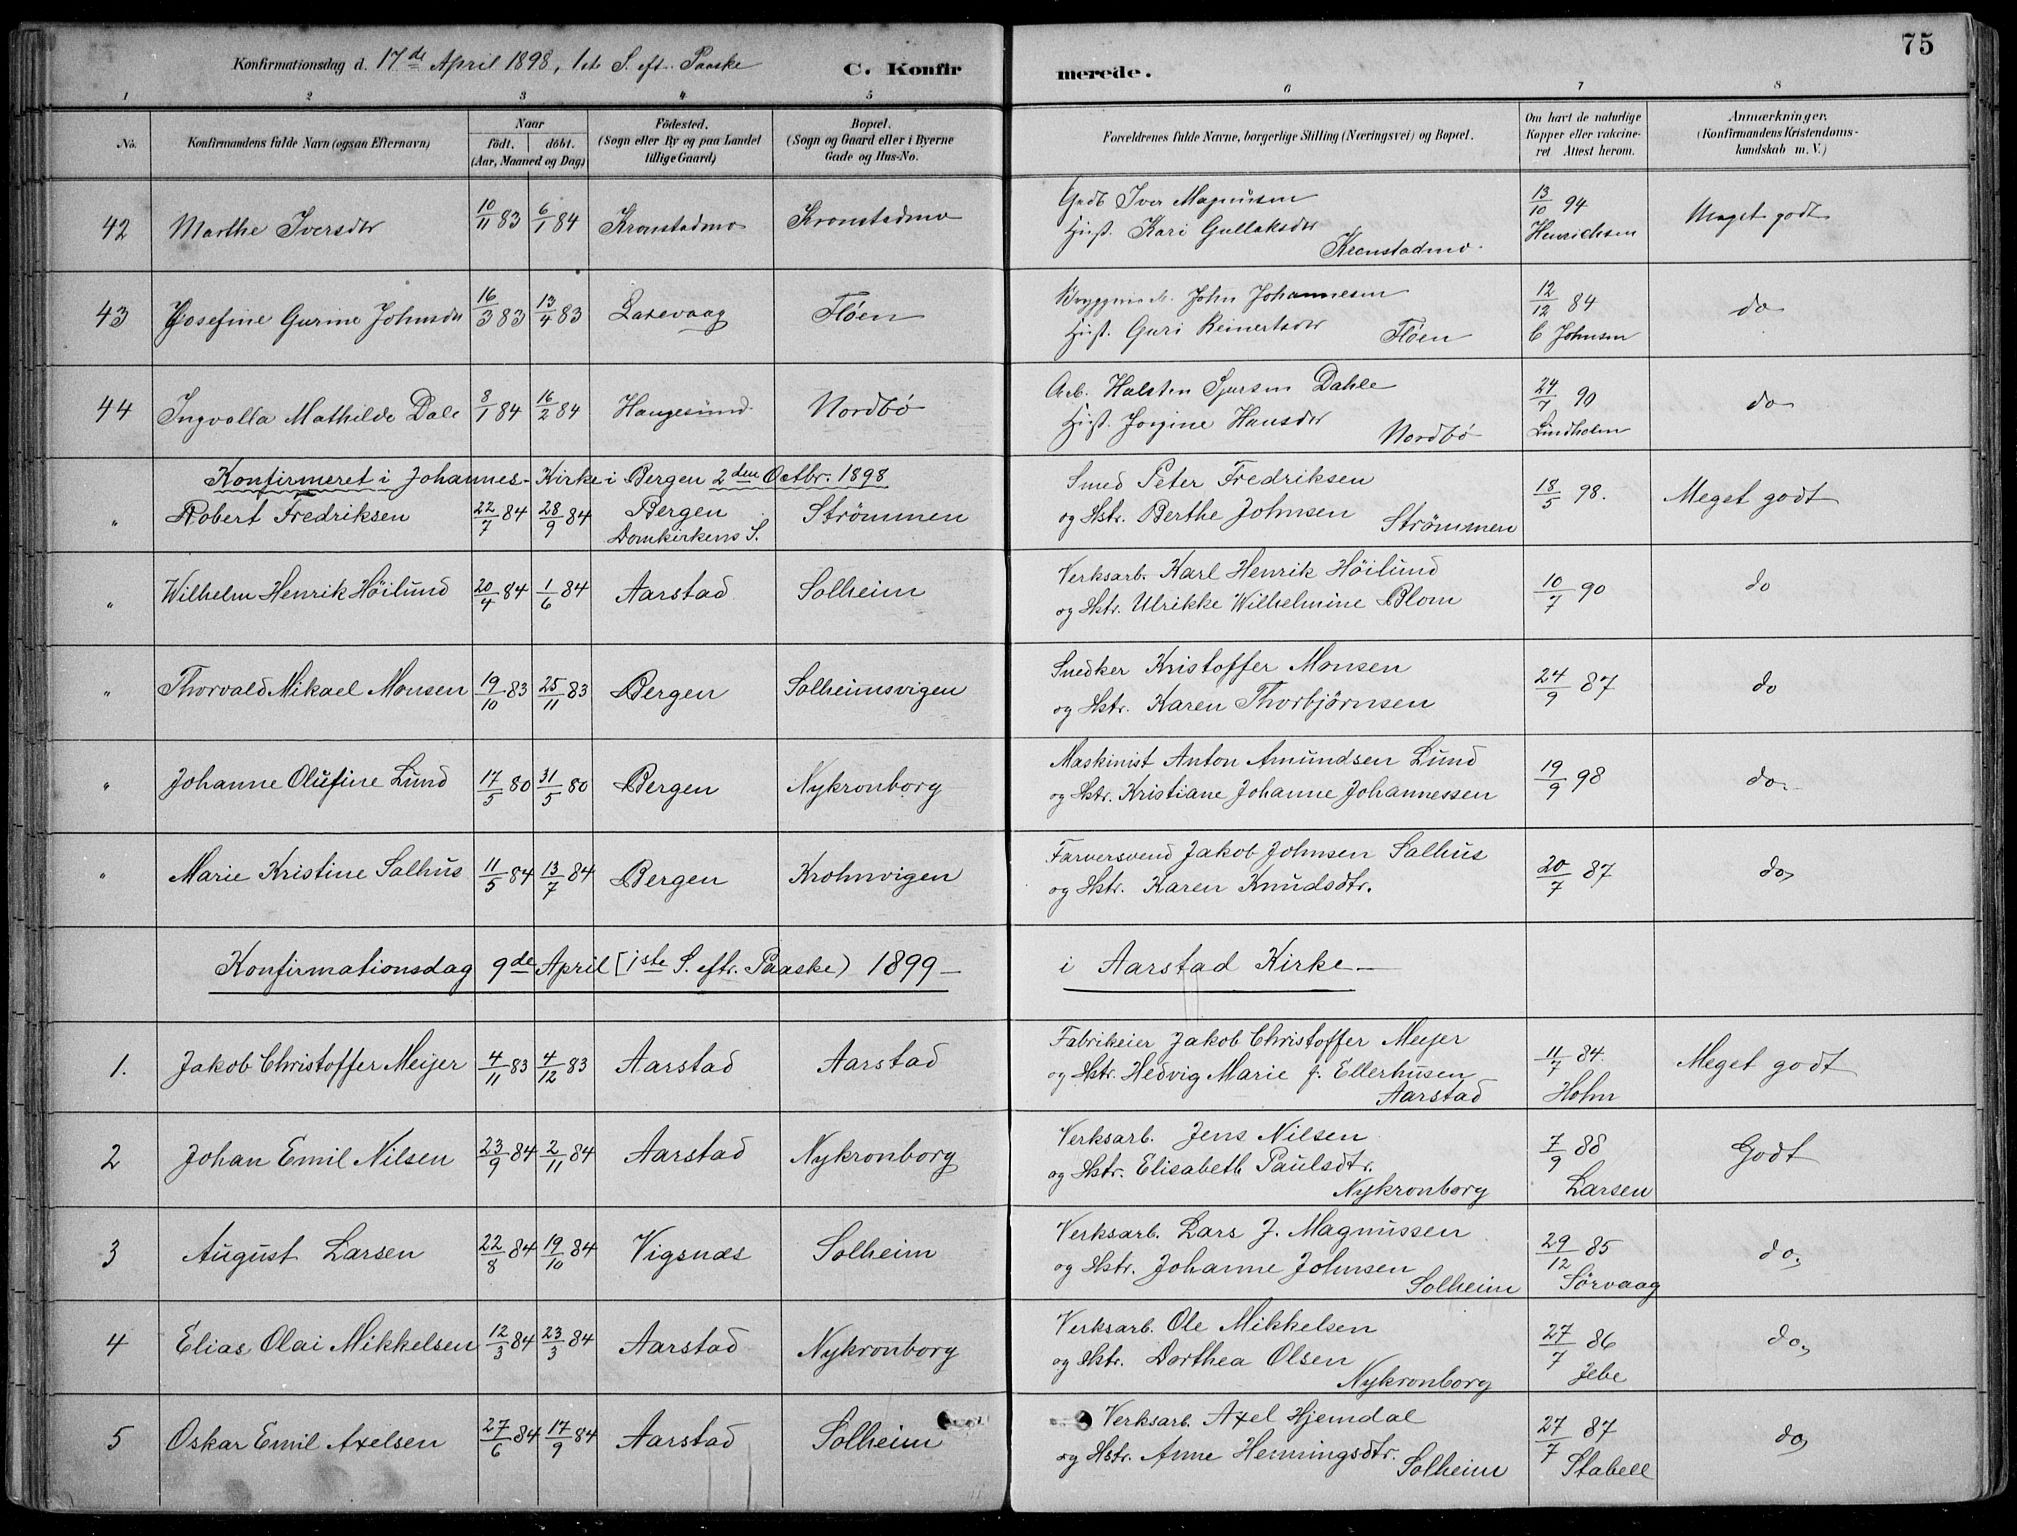 75
Konfirmationsdag d. 17de April 1898, 1ste S. eft. Paaske C. Konfirmerede.
1 2 3 4 5 6 7 8
No. Konfirmandens fulde Navn (ogsaa Efternavn) Naar födt. döbt. (Aar, Maaned og Dag) Födested. (Sogn eller By og paa Landet tillige Gaard) Bopæl. (Sogn og Gaard eller i Byerne Gade og Hus-No. Forældrenes fulde Navne, borgerlige Stilling (Næringsvei) og Bopæl. Om havt de naturlige Kopper eller vakcineret Attest herom. Anmærkninger. (Konfirmandens Kristendomskundskab m. V.)
42 Marthe Iversdtr 10/11 83 6/1 84 Kronstadmo Kronstadmo Gadb Iver Magnusen 13/10 94 Meget godt
Hust. Kari Gullaksdtr Kronstadmo Henrichsen
43 Josefine Gurine Johnsdtr 16/3 83 13/4 83 Laxevaag Flöen Bryggem. John Johannesen 12/12 84 do
Hust. Guri Reinertsdtr Flöen C Johnsen
44 Ingvolla Mathilde Dale 8/1 84 16/2 84 Haugesund Nordbö Arb. Halsten Sjursen Dahle 24/7 90 do
Hust. Jorgine Hansdtr Nordbö Lindholm
Konfirmeret i Johannes-Kirke i Bergen 2den Octbr. 1898
" Robert Fredriksen 22/7 84 28/9 84 Bergen Domkirkens S. Strömmen Smed Peter Fredriksen 18/5 98. Meget godt
og Hstr. Berthe Johnsen Strömmen
" Wilhelm Henrik Höilund 20/4 84 1/6 84 Aarstad Solheim Verksarb. Karl Henrik Höilund 10/7 90 do
og Hstr. Ulrikke Wilhelmine Blom
" Thorvald Mikael Monsen 19/10 83 25/11 83 Bergen Solheimsvigen Snedker Kristoffer Monsen 24/9 87 do
og Hstr. Karen Thorbjörnsen
" Johanne Olufine Lund 17/5 80 31/5 80 Bergen Nykronborg Maskinist Anton Amundsen Lund 19/9 98 do.
og Hstr. Kristiane Johanne Johannessen
" Marie Kristine Salhus 11/5 84 13/7 84 Bergen Krohnvigen Farversvend Jakob Johnsen Salhus 20/7 87 do,
og Hstr. Karen Knudsdtr.
Konfirmationsdag 9de April [1ste S. eftr. Paaske) 1899 – i Aarstad Kirke –
1. Jakob Christoffer Meijer 4/11 83 4/12 83 Aarstad Aarstad Fabrikeier Jakob Christoffer Meyer 11/7 84. Meget godt
og Hstr. Hedvig Marie f. Ellerhusen Aarstad Holm
2 Johan Emil Nilsen 23/9 84 2/11 84 Aarstad Nykronborg Verksarb. Jens Nilsen 7/9 88 Godt
og Hstr. Elisabeth Paulsdtr. Nykronborg Larsen
3 August Larsen 22/8 84 19/10 84 Vigsnæs Solheim Verksarb. Lars J. Magnussen 29/12 85 do,
og Hstr. Johanne Johnsen Solheim Sörvaag
4 Elias Olai Mikkelsen 12/3 84 23/3 84 Aarstad Nykronborg Verksarb. Ole Mikkelsen 27/7 86 do,
og Hstr. Dorthea Olsen Nykronborg Jebe
5 Oskar Emil Axelsen 27/6 84 17/9 84 Aarstad Solheim Verksarb. Axel Hjemdal 27/7 87 do,
og Hstr. Anne Henningsdtr. Solheim Stabell